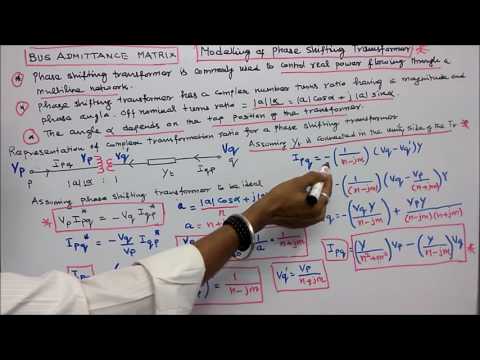 BUS ADMITTANCE MATRIX
Modelling of Phase Shifting Transformer
Phase shifting transformer is commonly used to control real power flowing through a
multiline network.
Phase shifting transformer has a complex number turns ratio having a magnitude and
phase angle. Off nominal turns ratio = |a|∠α = |a| cosα + j|a| sinα
The angle α depends on the tap position of the transformer.
Representation of complex transformation ratio for a phase shifting transformer
Vp Ipq Vp Vq' Iqp Vq
P |a|∠α : 1 Yt q
Assuming Yt is connected in the unity side of the Tr.
Ipq = - (1/(n-jm)) (Vq - Vq') Y
Assuming phase shifting transformer to be ideal
Vp Ipq* = - Vq' Iqp*
a = |a| cosα + j
(1/(n-jm)) (Vq - Vp/(n+jm)) Y
Ipq* = - Vq'/Vp Iqp*
a = n
= - (Vq Y/(n-jm)) + Vp Y/((n-jm)(n+jm))
1/a = 1/(n+jm)
Ipq
1/(n-jm)
Vq' = Vp/(n+jm)
Ipq = (Y/(n²+m²)) Vp - (Y/(n-jm)) Vq